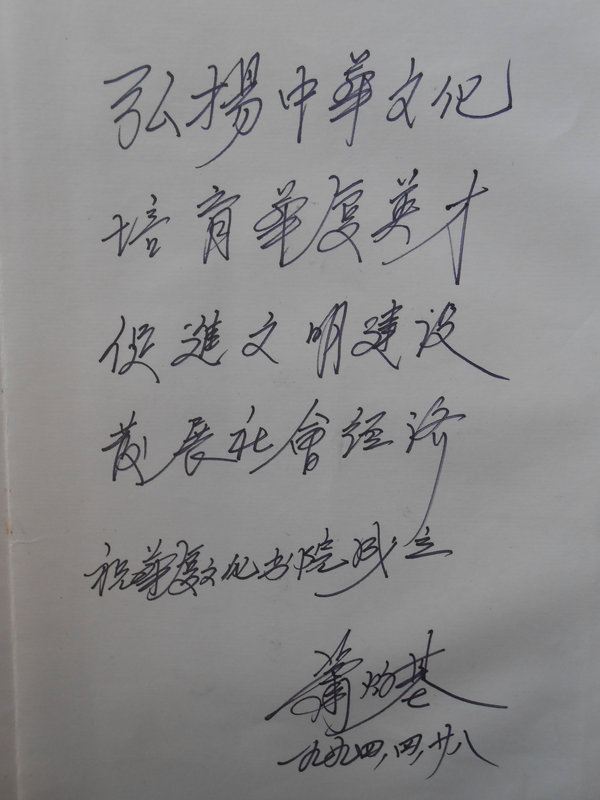 弘揚中華文化
培育華夏英才
促進文明建设
發展社會经济
祝華夏文化书院成立
蕭灼基
一九九四.四.廿八